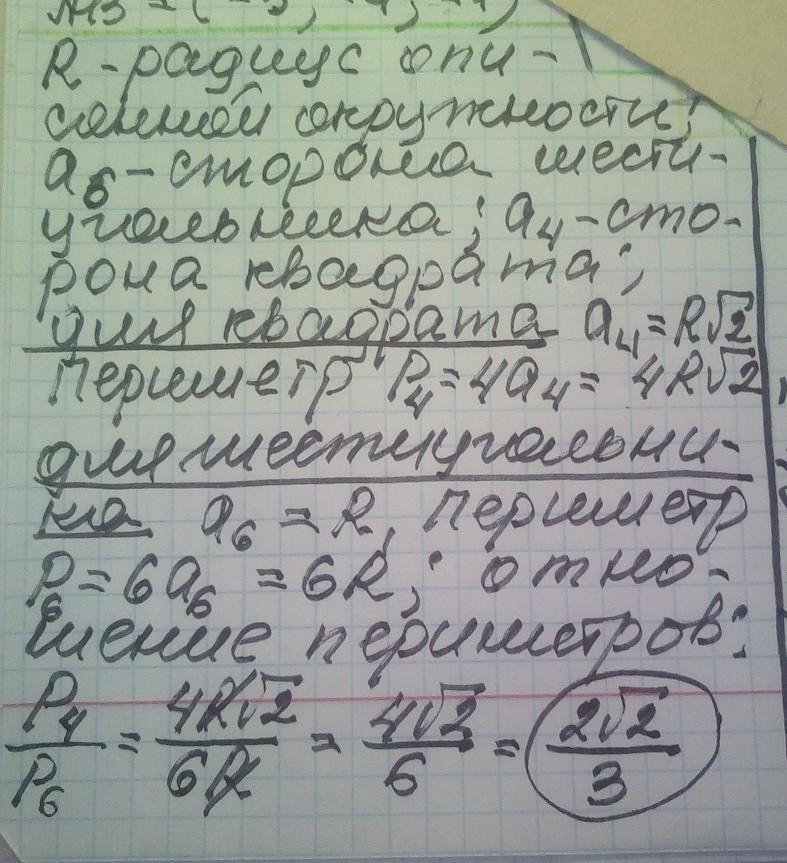 R - радиус опи-
санной окружности;
a₆ - сторона шести-
угольника; a₄ - сто-
рона квадрата;
для квадрата a₄ = R√2
Периметр P₄ = 4a₄ = 4R√2,
для шестиугольни-
ка a₆ = R, Периметр
P₆ = 6a₆ = 6R; отно-
шение периметров:
P₄/P₆ = 4R√2/6R = 4√2/6 = 2√2/3